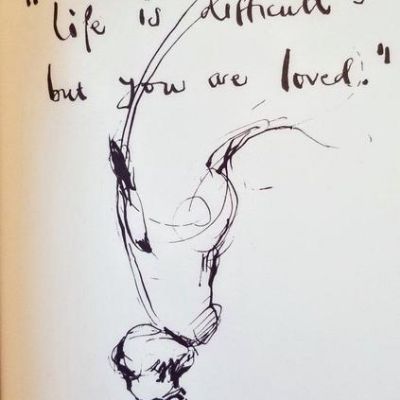 "Life is difficult
but you are loved."